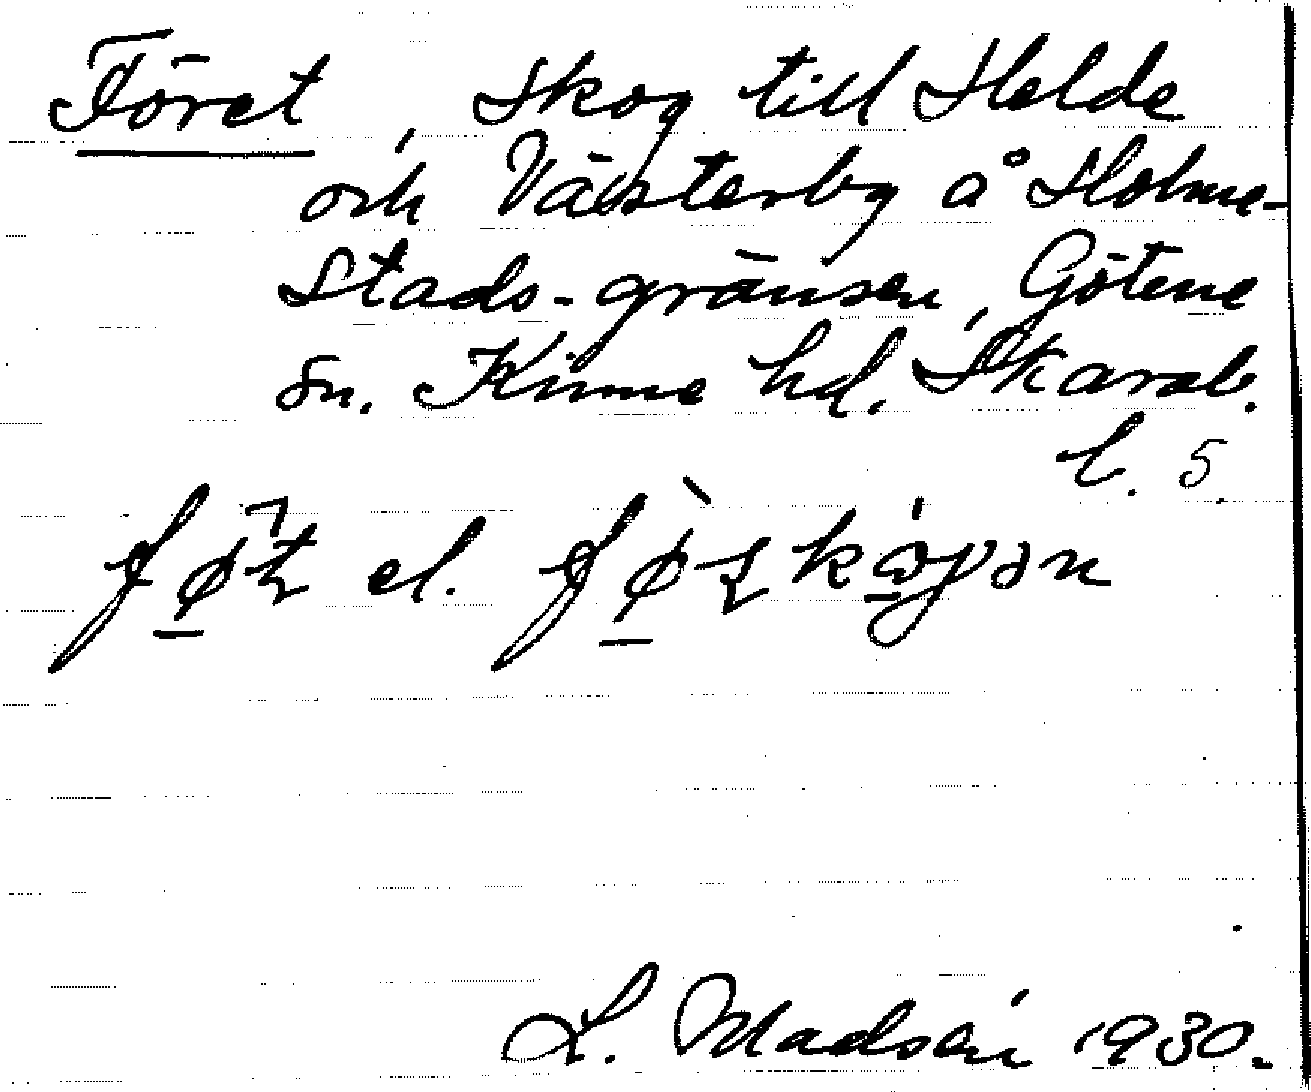 Föret, skog till Helde
och Västerby å Holme-
stads-gränsen, Götene
sn. Kinne hd. Skarab.
l. 5.
el.
L. Madsén 1930.